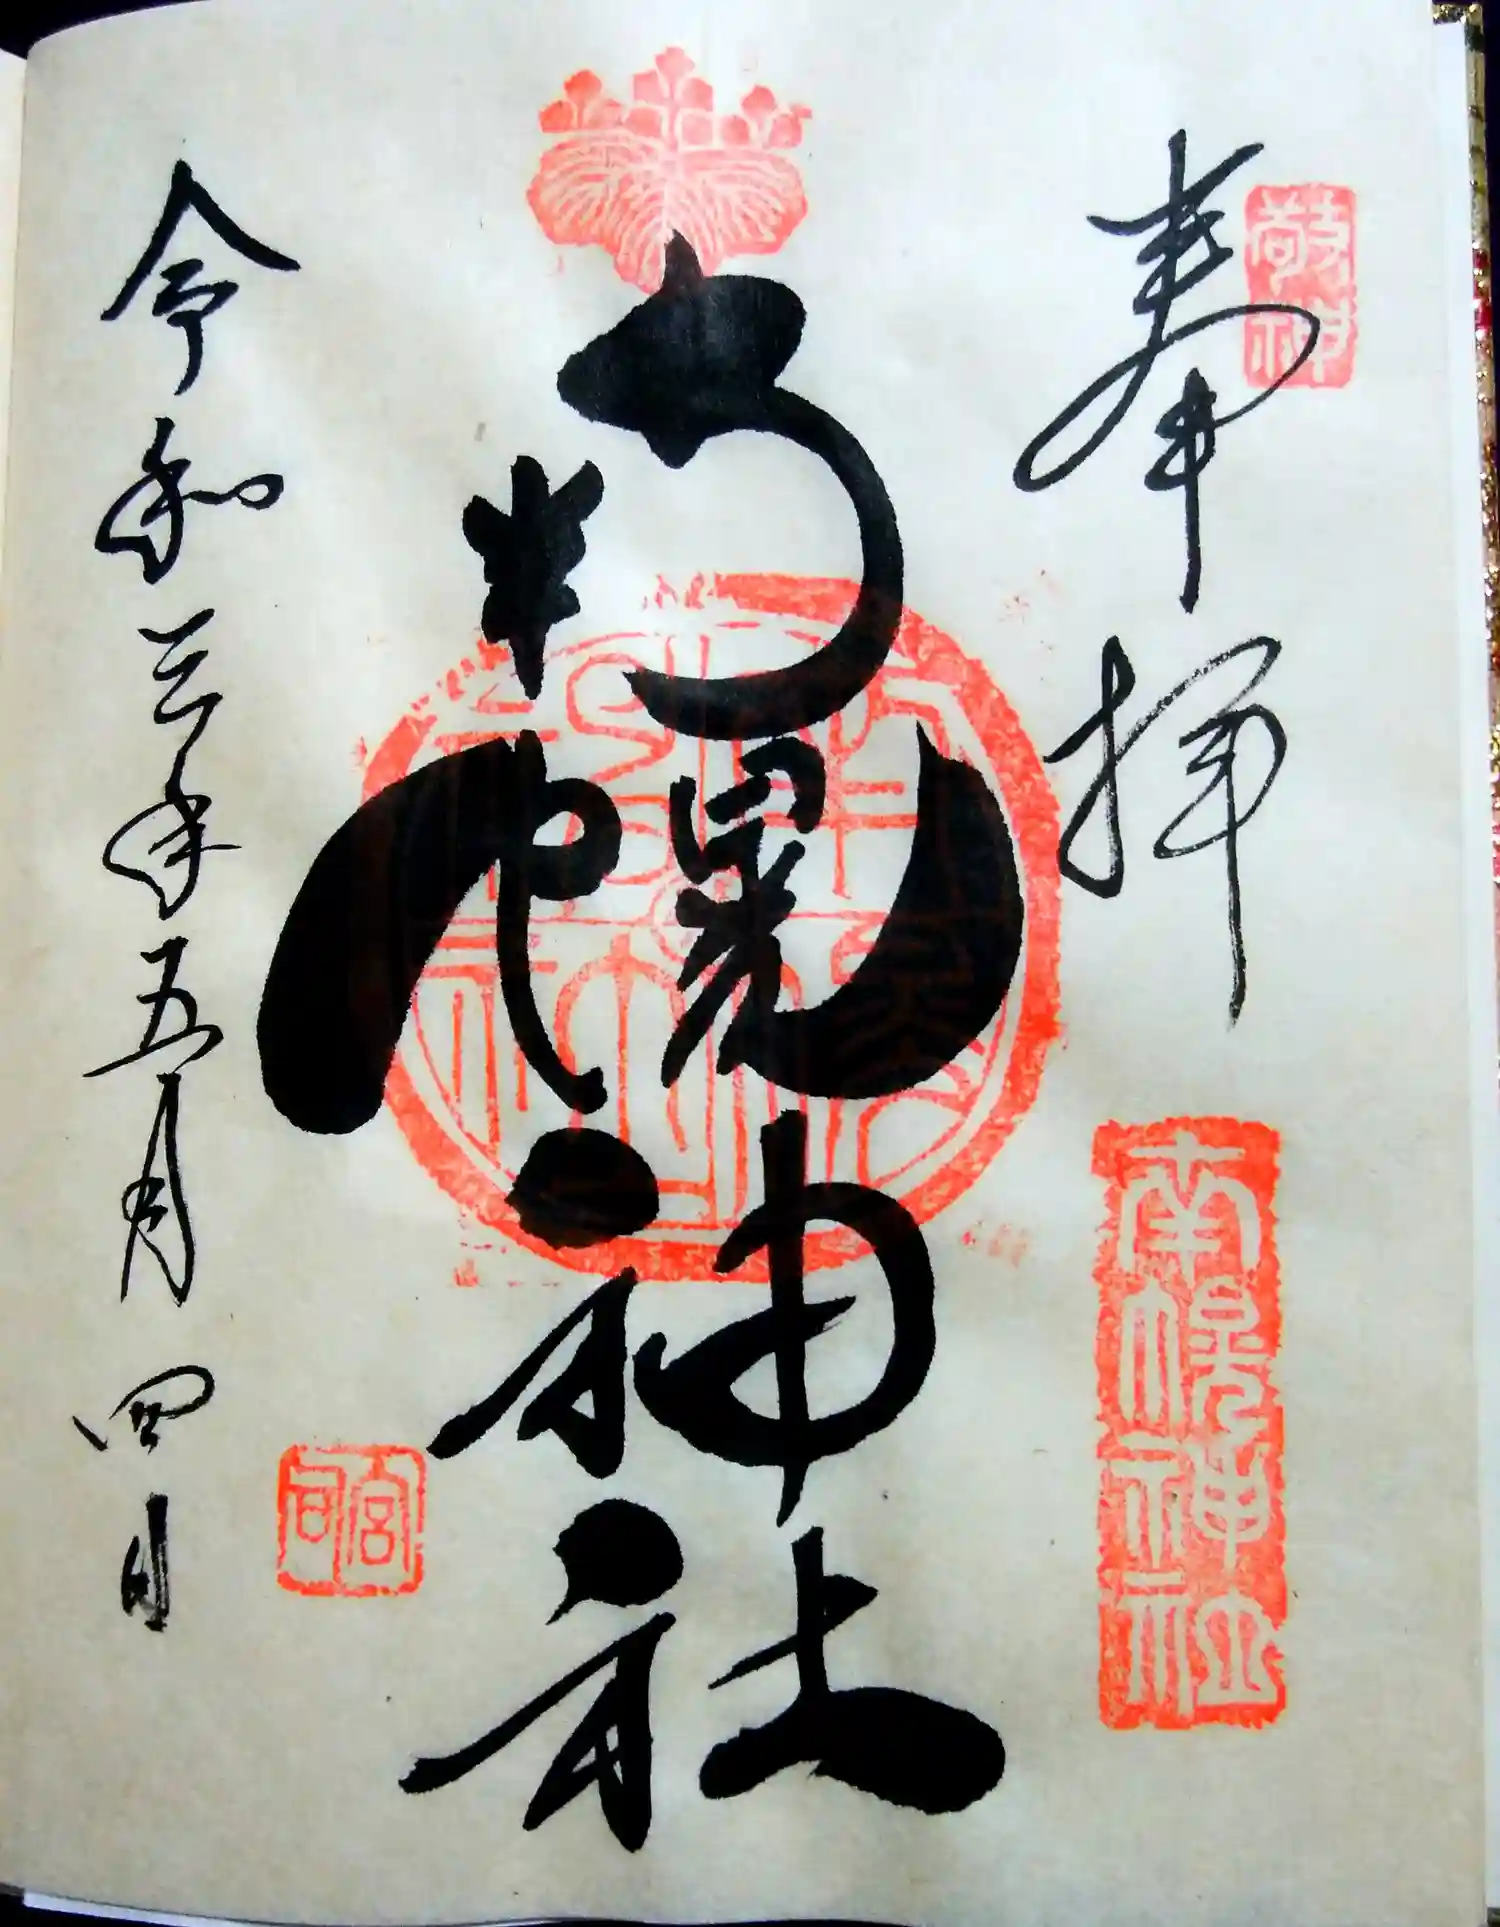 敬神
奉拝
南幌神社
南幌神社
令和三年五月四日
宮司